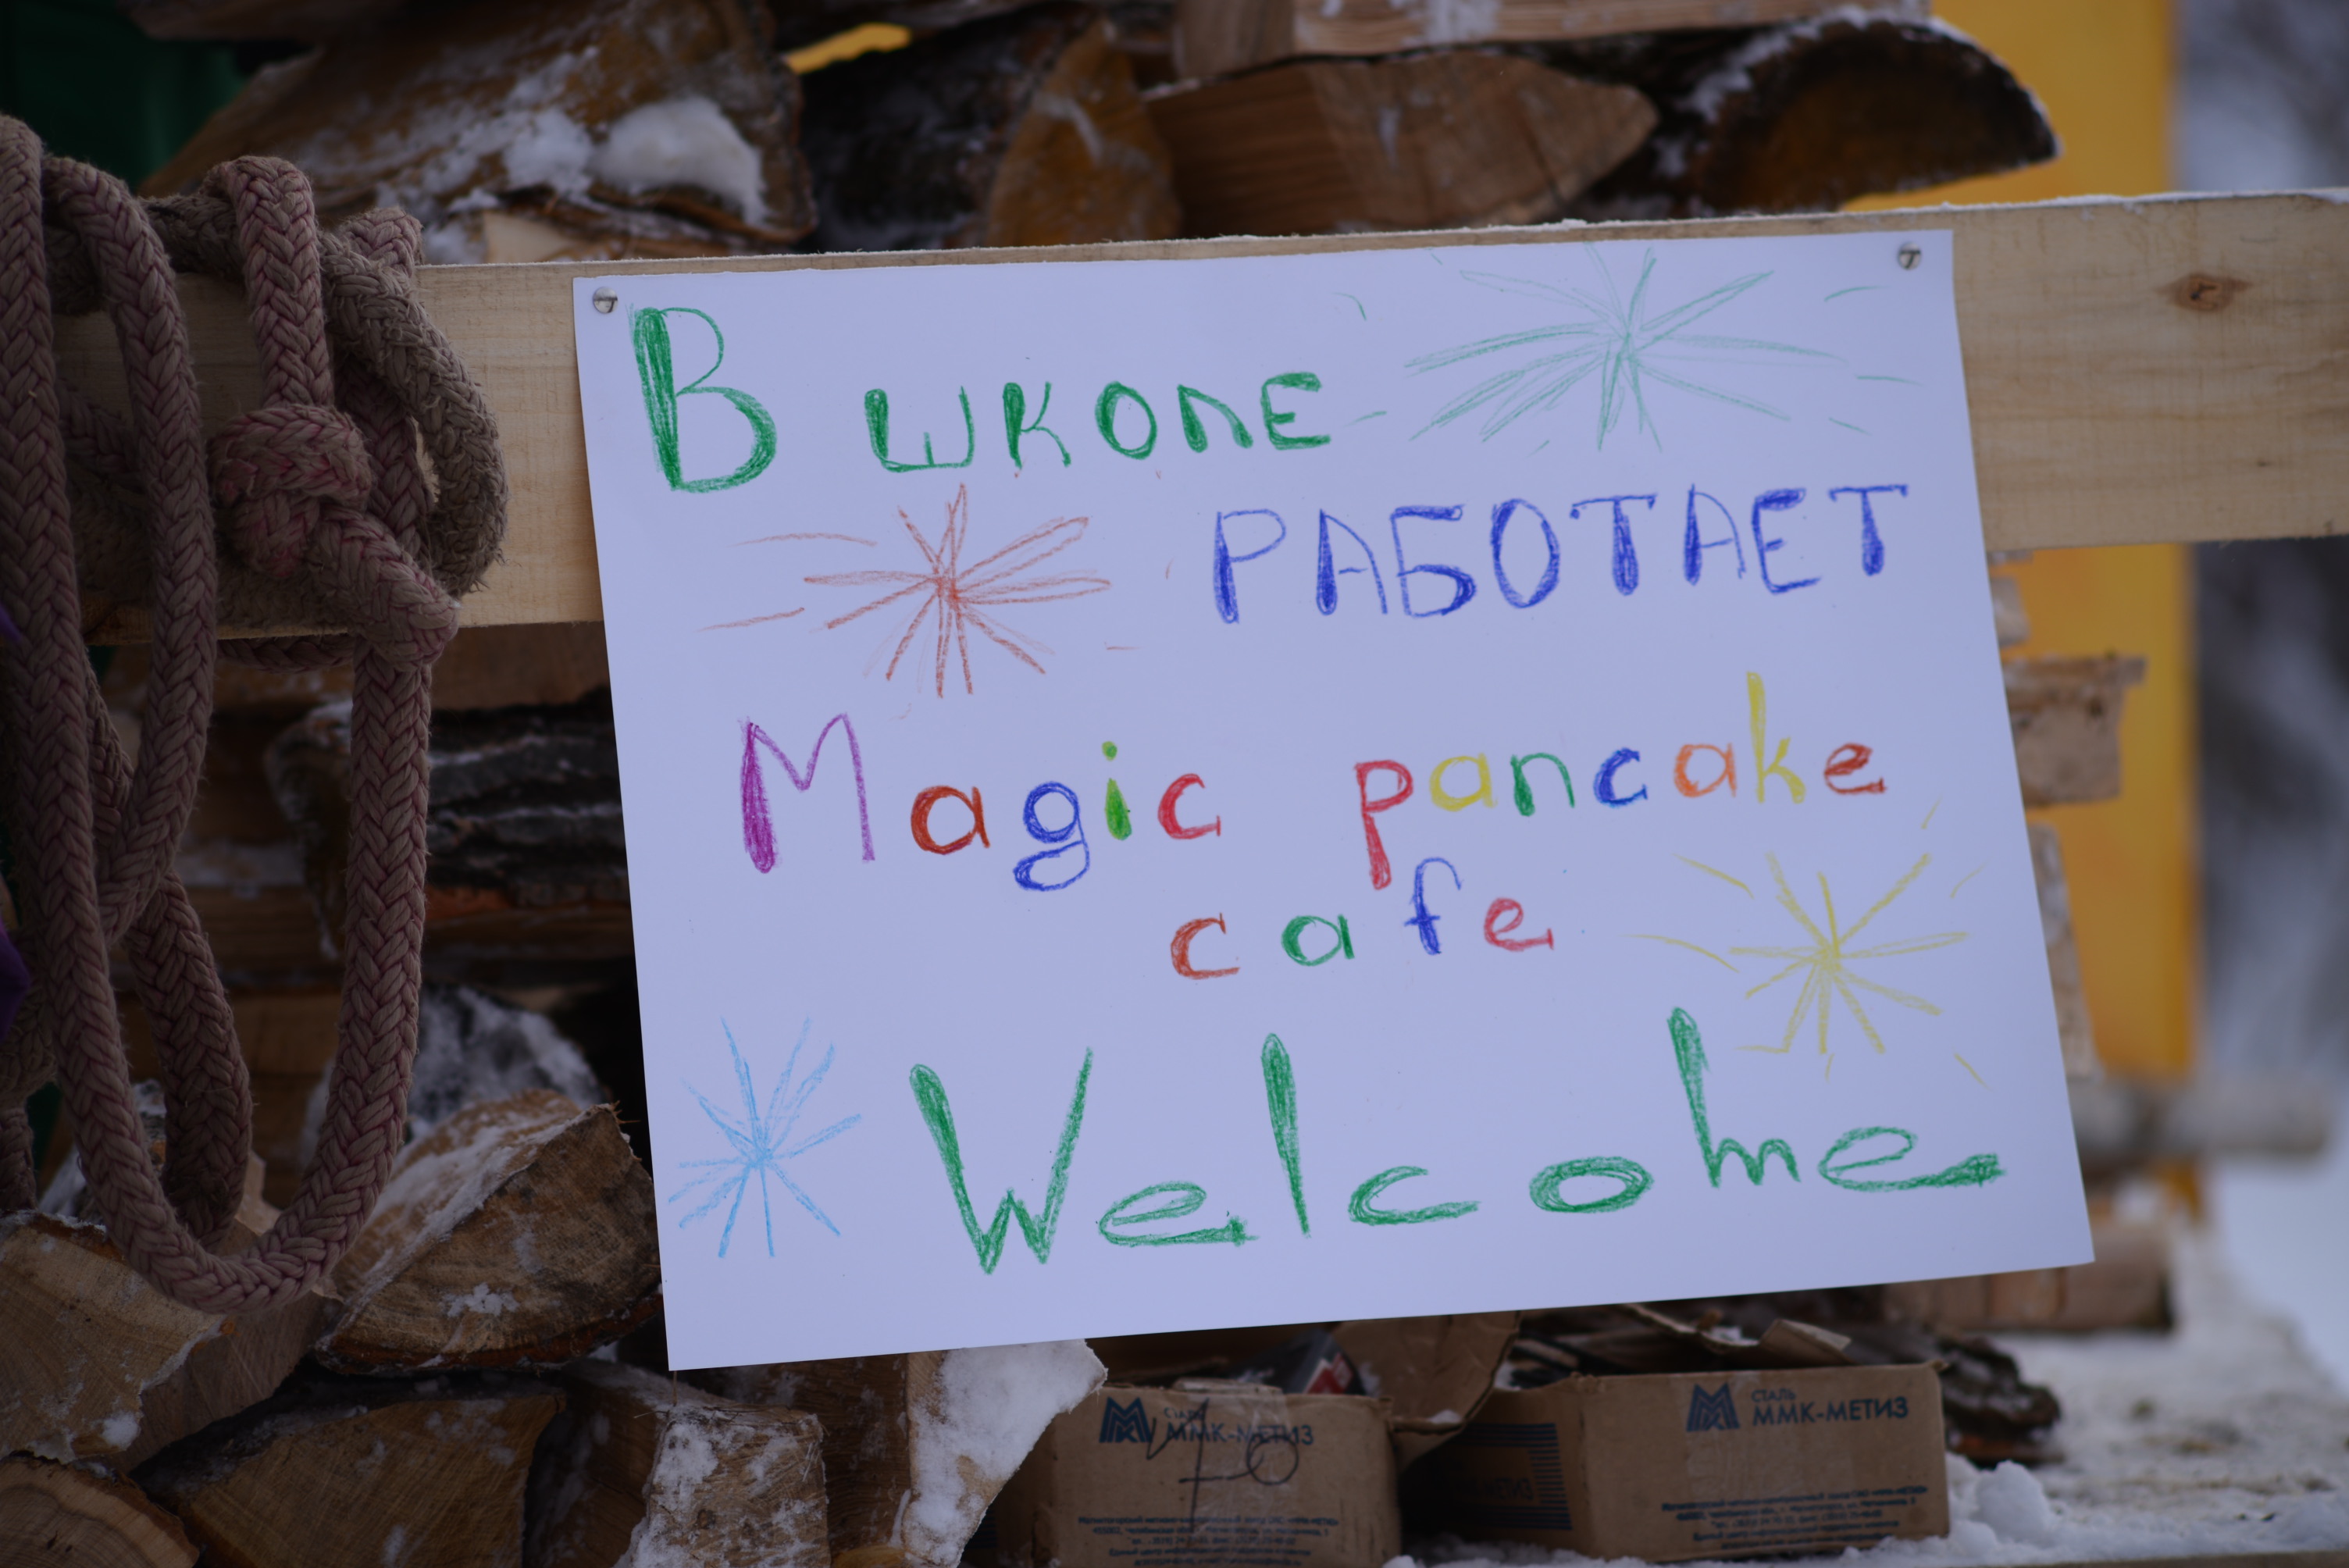 В школе
РАБОТАЕТ
Magic pancake
cafe
Welcome
СТАЛЬ
ММК-МЕТИЗ
СТАЛЬ
ММК-МЕТИЗ